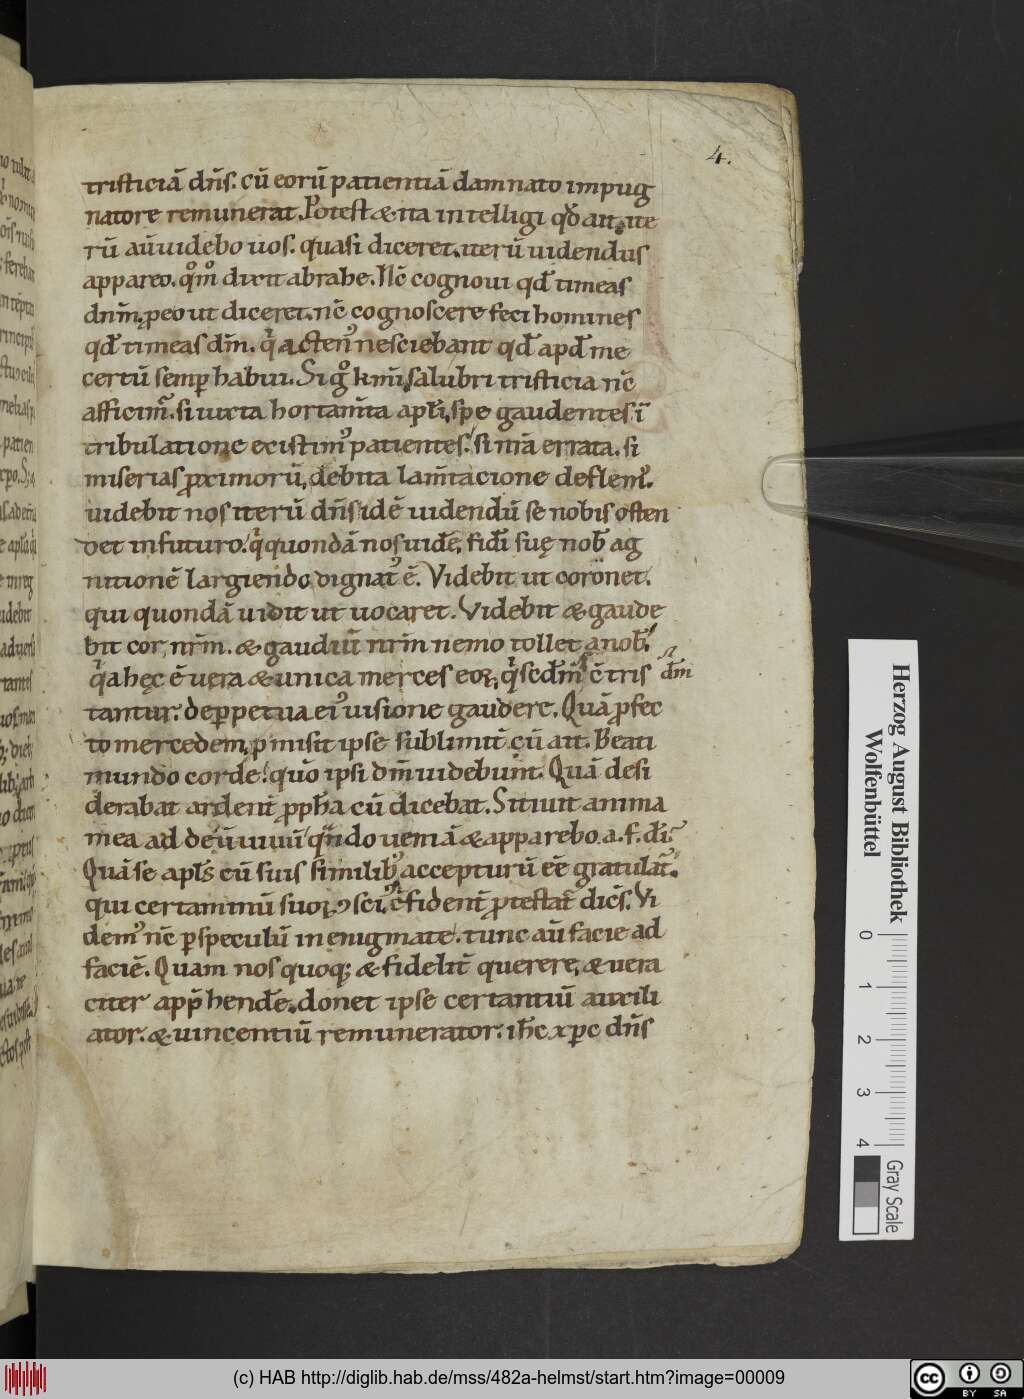 4.
tristiciā dn̄s. cū eorū patientiā damnato impug
natore remunerat. Potest & ita intelligi qđ ait. ite
rū aū uidebo uos. quasi diceret. iterū uidendus
appareo. qͦmͦ dixit abrahe. Nc̄ cognoui qđ timeas
dn̄m. ꝑeo ut diceret. nc̄ cognoscere feci homines
qđ timeas dm̄. qͥ actenꝰ nesciebant qđ apđ me
certū semꝑ habui. Si gͦ km̄i salubri tristicia nc̄
afficimͬ. si iuxta hortam̄ta apl̄i, spe gaudentes. ī
tribulatione existimꝰ patientes. si nr̄a errata. si
miserias ꝓximorū, debita lam̄tacione deflemꝰ.
uidebit nos iterū dn̄s idē uidendū se nobis osten
det in futuro. qͥ quondā nos uidē, fidī suę nob̄ ag
nitionē largiendo dignatꝰ ē. Videbit ut coronet.
qui quondā uidit ut uocaret. Videbit & gaude
bit cor nr̄m. & gaudiū nr̄m nemo tollet a nob̄.
qͥa hęc ē uera & unica merces eoꝝ, qͥ scd̄m ē tris dm̄
tantur. de ꝑpetua eiꝰ uisione gaudere. Quā ꝓfec
to mercedem, ꝓmisit ipse sublimit̄ cū ait. Beati
mundo corde. quō ipsi dm̄ uidebunt. Quā desi
derabat ardent̄ ꝓph̄a cū dicebat. Sitiuit anima
mea ad deū uiuū qn̄do uemā & apparebo. a. f. dī.
Quā se apl̄s cū suis similibꝰ accepturū ēē gratulat̄.
qui certaminū suoꝝ ꝯsci, ꝯfident̄ ꝓtestat̄ dicēs. Vi
demꝰ nc̄ ꝑ speculū in enigmate. tunc aū facie ad
faciē. Quam nos quoqꝫ & fidelit̄ querere, & uera
citer app̄hendē. donet ipse certantiū auxili
ator. & uincentiū remunerator. ih̄c xp̄c dn̄s
Herzog August Bibliothek
Wolfenbüttel
0 1 2 3 4
Gray Scale
(c) HAB http://diglib.hab.de/mss/482a-helmst/start.htm?image=00009
cc BY SA